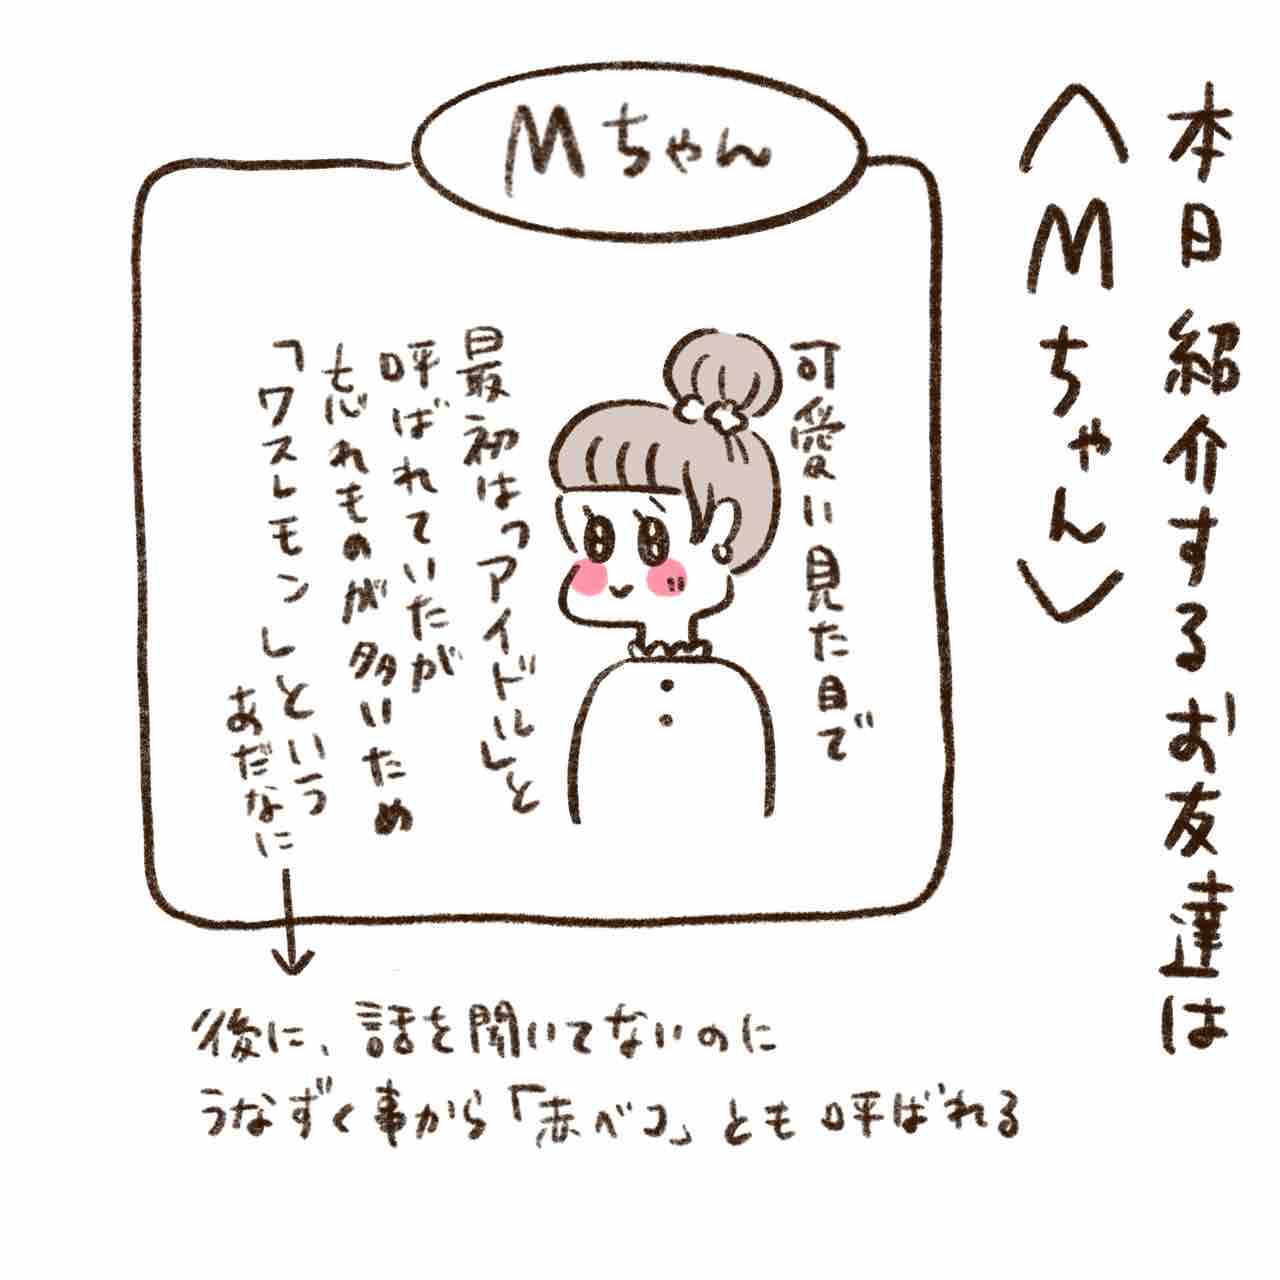 本日紹介するお友達は
〈Mちゃん〉
Mちゃん
可愛い見た目で
最初は「アイドル」と
呼ばれていたが
忘れものが多いため
「ワスレモン」という
あだなに
後に、話を聞いてないのに
うなずく事から「赤べコ」とも呼ばれる